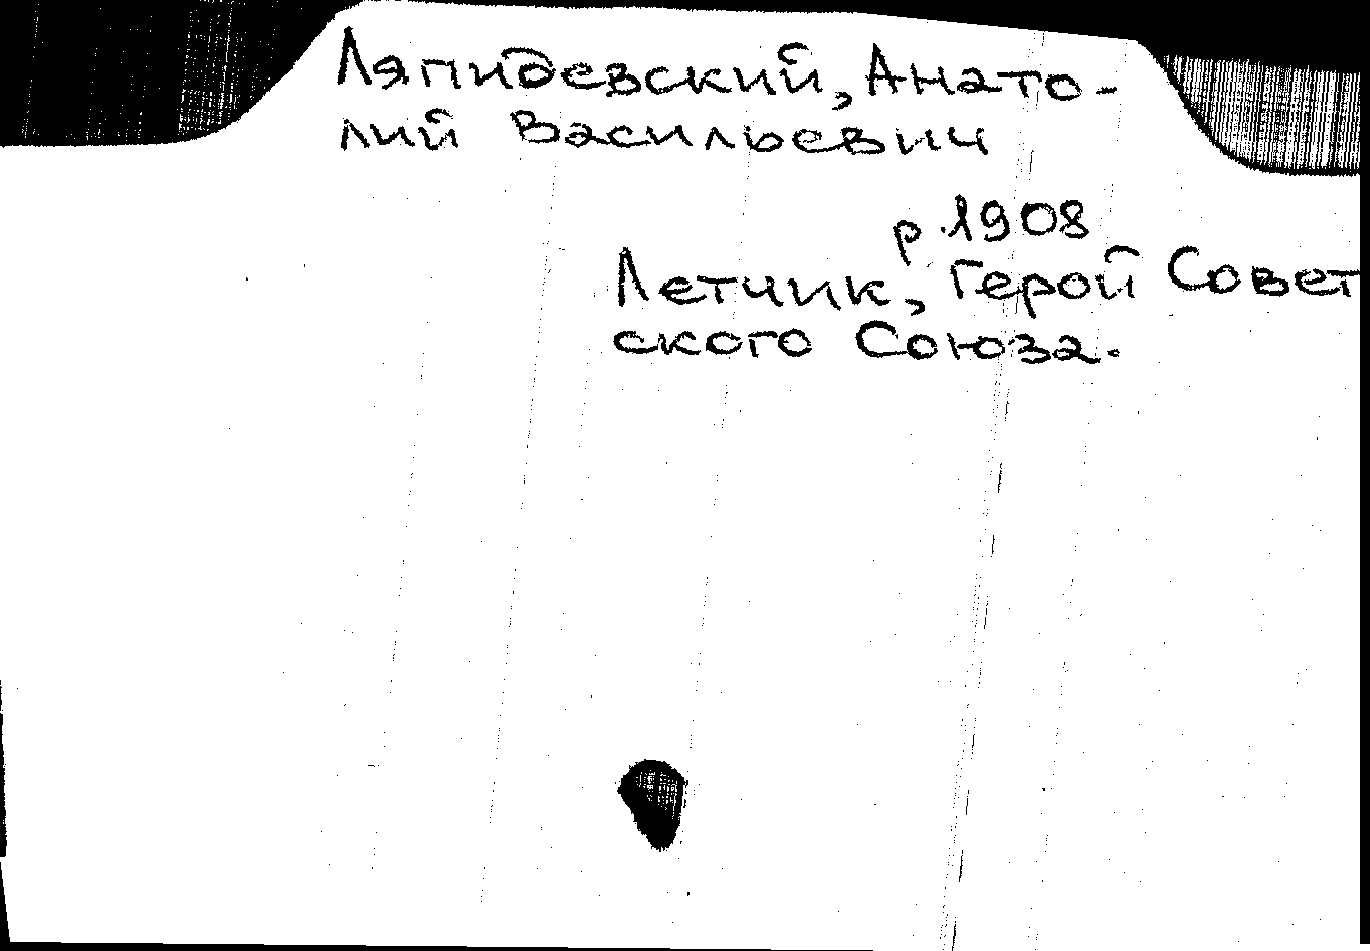 Ляпидевский, Анато-
лий Васильевич
р. 1908
Летчик, Герой Совет
ского Союза.